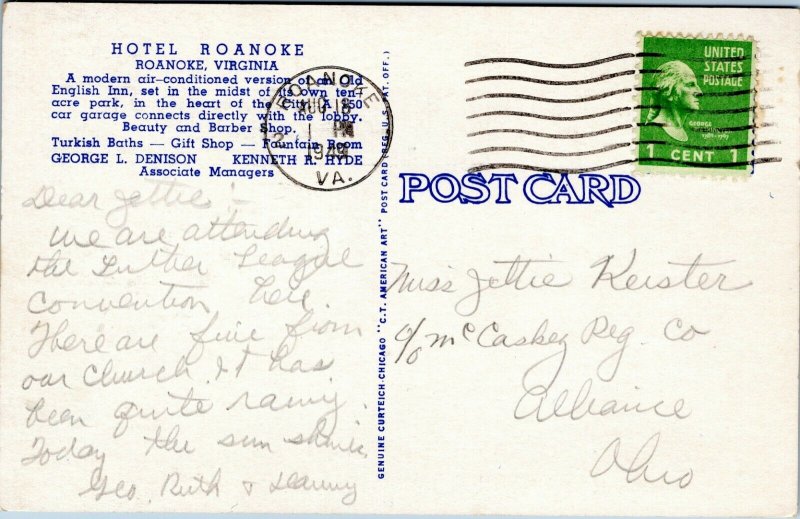 HOTEL ROANOKE
ROANOKE, VIRGINIA
A modern air-conditioned version of an Old
English Inn, set in the midst of its own ten-
acre park, in the heart of the City. A 350
car garage connects directly with the lobby.
Beauty and Barber Shop.
Turkish Baths — Gift Shop — Fountain Room
GEORGE L. DENISON KENNETH R. HYDE
Associate Managers
Dear Jettie:-
We are attending
the Luther League
Convention here.
There are five from
our church. It has
been quite rainy.
Today the sun shines.
Geo, Ruth &
GENUINE CURTEICH-CHICAGO "C.T. AMERICAN ART" POST CARD (REG. U.S. PAT. OFF.)
ROANOKE
AUG 18
1 PM
1949
VA.
UNITED
STATES
POSTAGE
GEORGE
1 CENT 1
POST CARD
Miss Jettie Keister
c/o McCaskey Reg. Co
Alliance
Ohio